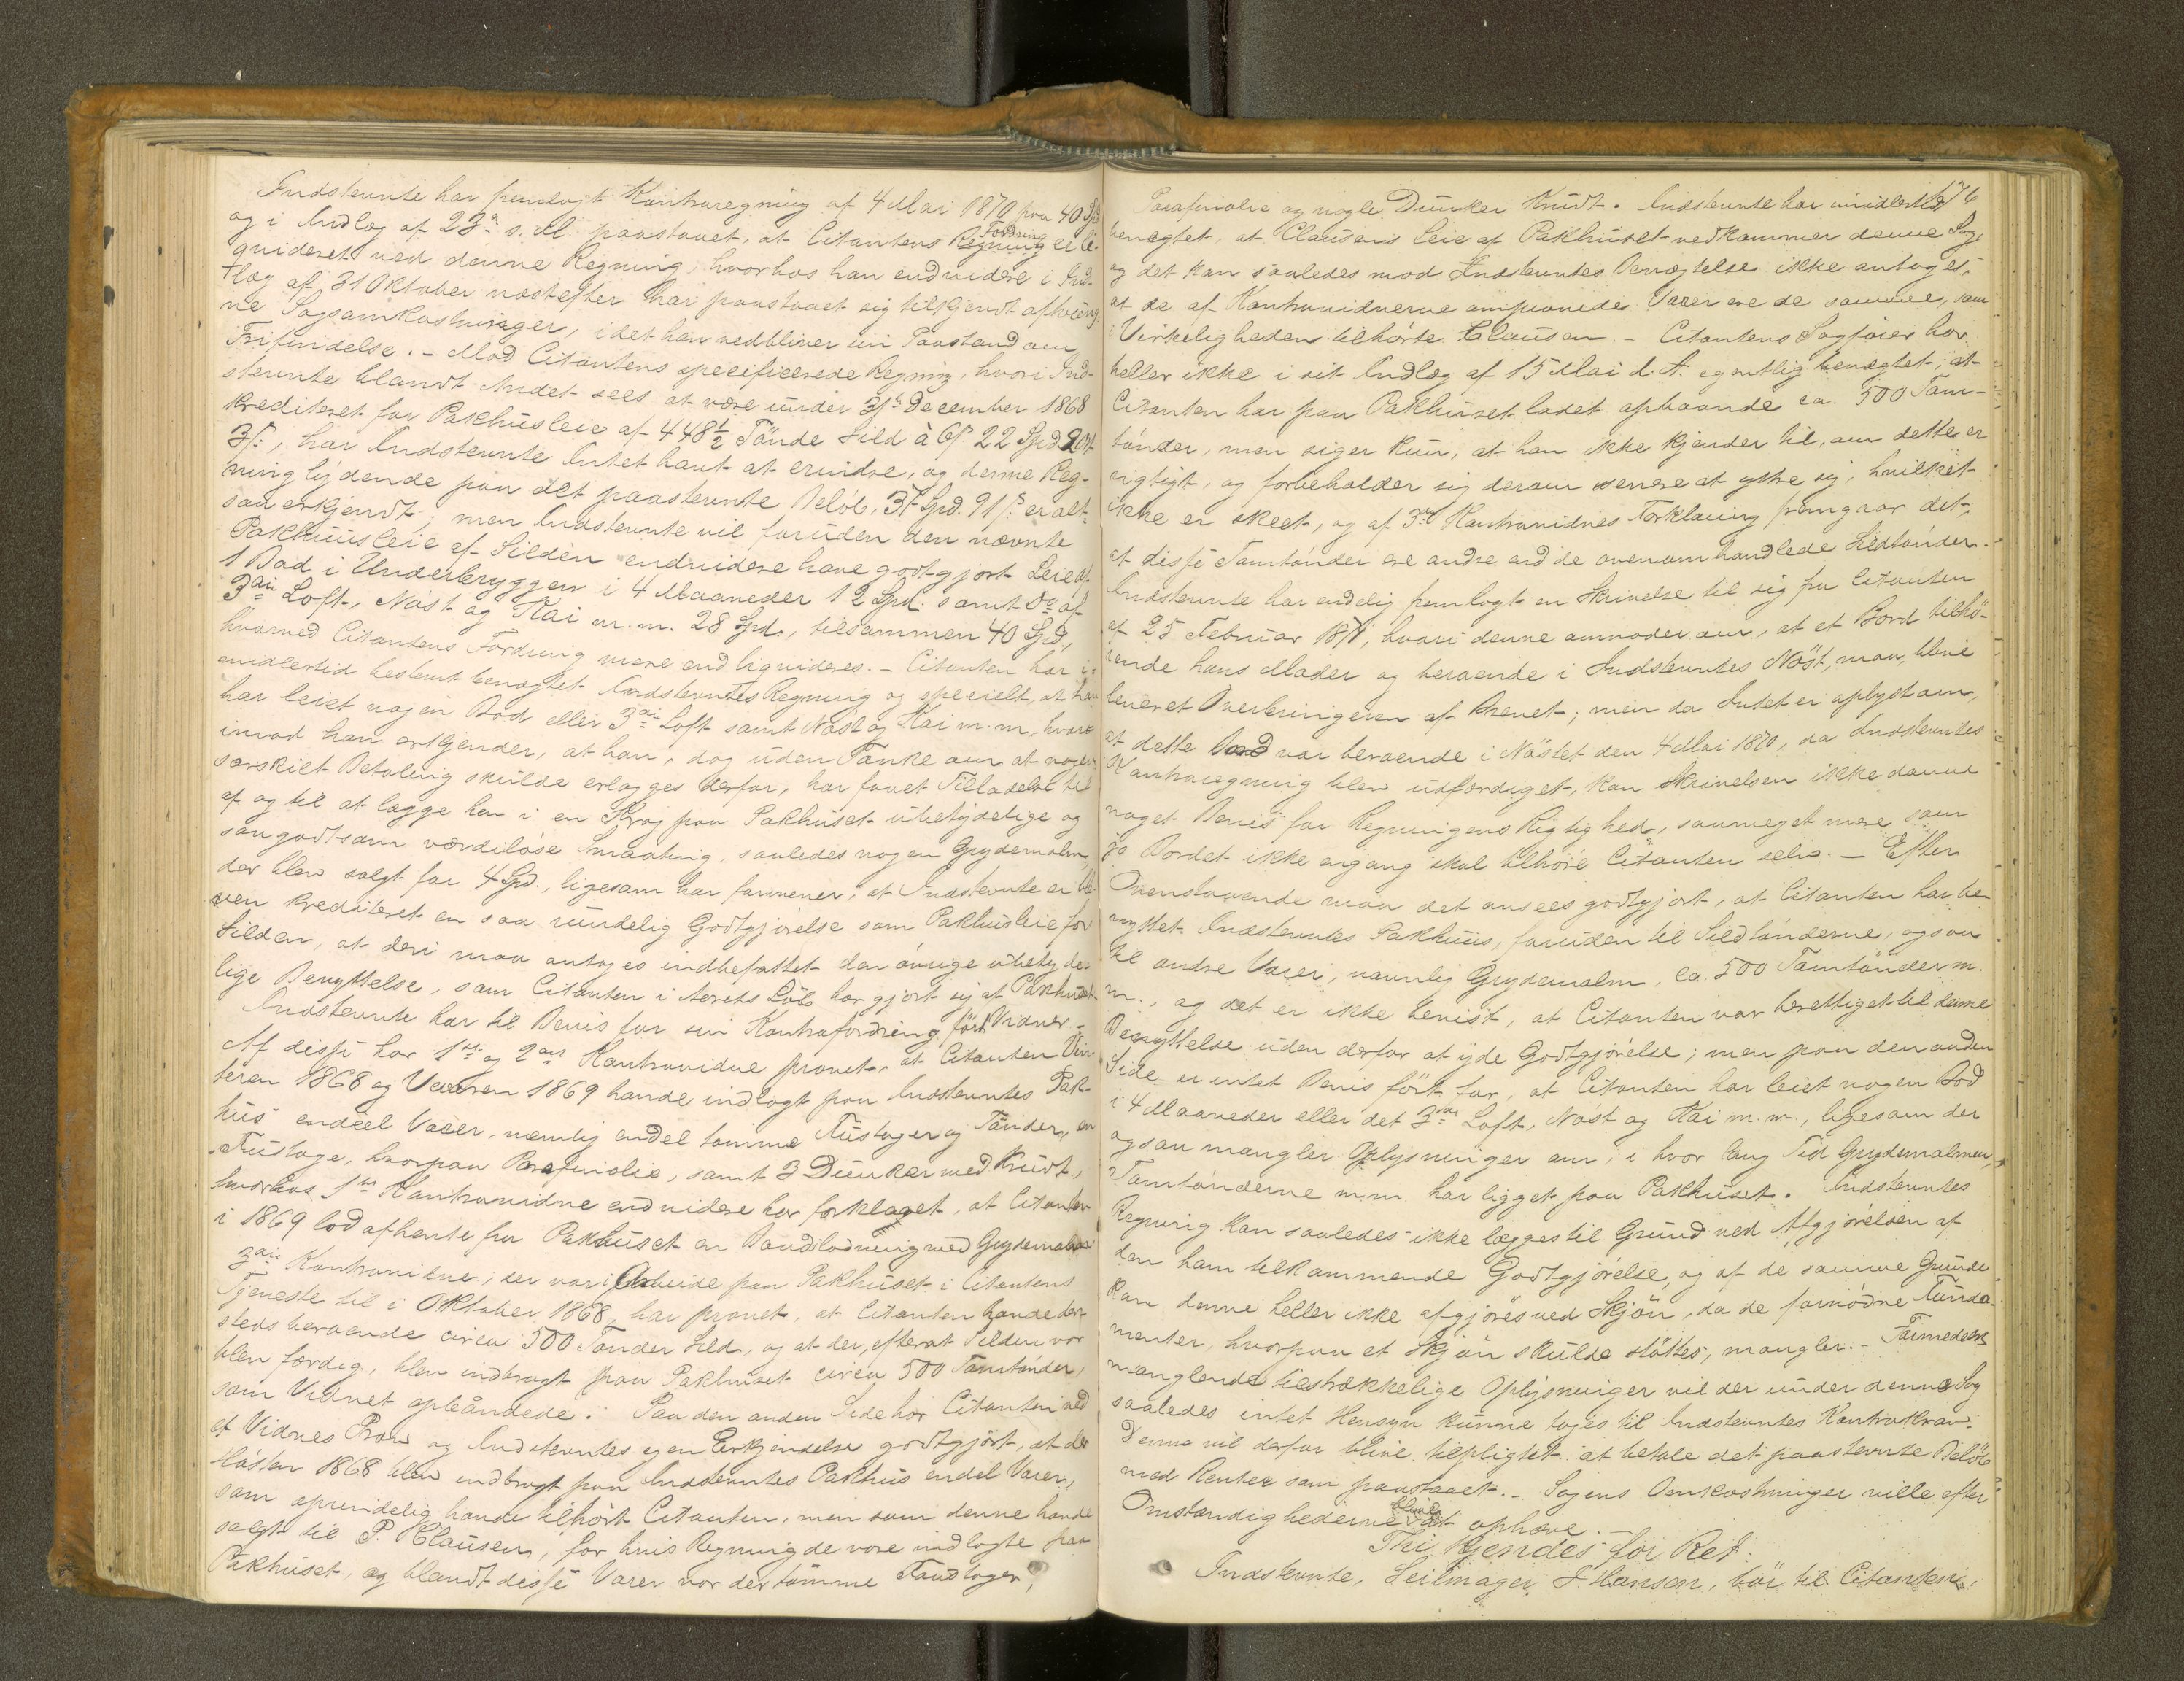 Indstevnte har fremlagt Kontraregning af 4 Mai 1870 paa 40 Spd
og i Indlæg af 23de s. M. paastaaet, at Citantens Fordring er li-
qvideret ved denne Regning, hvorhos han endvidere i Ind-
læg af 31 Oktober næstefter har paastaaet sig tilkjendt afhæng-
ne Sagsomkostninger, idet han vedbliver sin Paastand om
Frifindelse. - Mod Citantens specificerede Regning, hvori Ind-
stevnte blandt Andet sees at være under 31te December 1868
krediteret for Pakhusleie af 448½ Tönde Sild à 6 ß 22 Spd. 2 Ort
3 ß, har Indstevnte Intet havt at erindre, og denne Reg-
ning lydende paa det paastevnte Belöb, 37 Spd. 91 ß er alt-
saa erkjendt; men Indstevnte vil foruden den nævnte
Pakhusleie af Silden endvidere have godtgjort Leie af
1 Bod i Underbryggen i 4 Maaneder 12 Spd. samt Do af
3die Loft, Nöst og Kai m. m. 28 Spd., tilsammen 40 Spd,
hvorved Citantens Fordring mere end liqvideres. - Citanten har i-
midlertid bestemt benægtet Indstevntes Regning og specielt, at han
har leiet nogen Bod eller 3die Loft samt Nöst og Kai m. m., hvor-
imod han erkjender, at han, dog uden Tanke om at nogen
særskilt Betaling skulde erlægges derfor, har faaet Tilladelse til
af og til at lægge hen i en Krog paa Pakhuset ubetydelige og
saa godt som værdilöse Smaating, saaledes nogen Grydemalm,
der blev solgt for 4 Spd., ligesom han formener, at Indstevnte er ble-
ven krediteret en saa rundelig Godtgjörelse som Pakhusleie for
Silden, at deri maa antages indbefattet den övrige ubetyde-
lige Benyttelse, som Citanten i Aarets Löb har gjort sig af Pakhuset.
Indstevnte har til Bevis for sin Kontrafordring fört Vidner.
Af disse har 1ste og 2det Kontravidne provet, at Citanten Vin-
teren 1868 og Vaaren 1869 havde indlagt paa Indstevntes Pak-
hus endeel Varer, nemlig endel tomme Fustager og Tönder, en
Fustage, hvorpaa Parafinolie, samt 3 Dunker med Krudt,
hvorhos 1ste Kontravidne endvidere har forklaret, at Citanten
i 1869 lod afhente fra Pakhuset en Baadladning med Grydemalm.
3die Kontravidne, der var i Arbeide paa Pakhuset i Citantens
Tjeneste til i Oktober 1868, har provet, at Citanten havde der-
steds beroende circa 500 Tönder Sild, og at der, efterat Silden var
bleven færdig, blev indbragt paa Pakhuset circa 500 Tomtönder,
som Vidnet opbåndede. Paa den anden Side har Citanten ved
et Vidnes Prov og Indstevntes egen Erkjendelse godtgjort, at der
Hösten 1868 blev indbragt paa Indstevntes Pakhus endel Varer,
som oprindelig havde tilhört Citanten, men som denne havde
solgt til P. Clausen, for hvis Regning de vare indlagte paa
Pakhuset, og blandt disse Varer var der tomme Fustager,
176
Parafinolie og nogle Dunker Krudt. Indstevnte har imidlertid
benægtet, at Clausens Leie af Pakhuset vedkommer denne Sag,
og det kan saaledes mod Indstevntes Benægtelse ikke antages,
at de af Kontravidnerne omprovede Varer ere de samme, som
i Virkeligheden tilhörte Clausen. - Citantens Sagförer har
heller ikke i sit Indlæg af 15 Mai d. A. egentlig benægtet, at
Citanten har paa Pakhuset ladet opbaande ca. 500 Tom-
tönder, men siger kun, at han ikke kjender til, om dette er
rigtigt, og forbeholder sig derom senere at yttre sig, hvilket
ikke er skeet, og af 3die Kontravidnes Forklaring fremgaar det,
at disse Tomtönder ere andre end de ovenomhandlede Sildtönder.
Indstevnte har endelig fremlagt en Skrivelse til sig fra Citanten
af 25 Februar 1871, hvori denne anmoder om, at et Bord tilhö-
rende hans Moder og beroende i Indstevntes Nöst, maa blive
leveret Overbringeren af Brevet; men da Intet er oplyst om,
at dette Bord var beroende i Nöstet den 4 Mai 1870, da Indstevntes
Kontraregning blev udfærdiget, kan Skrivelsen ikke danne
noget Bevis for Regningens Rigtighed, saameget mere som
jo Bordet ikke engang skal tilhöre Citanten selv. - Efter
Ovenstaaende maa det ansees godtgjort, at Citanten har be-
nyttet Indstevntes Pakhuus, foruden til Sildtönderne, ogsaa
til andre Varer, navnlig Grydemalm, ca. 500 Tomtönder m.
m., og det er ikke bevist, at Citanten var berettiget til denne
Benyttelse uden derfor at yde Godtgjörelse; men paa den anden
Side er intet Bevis fört for, at Citanten har leiet nogen Bod
i 4 Maaneder eller det 3die Loft, Nöst og Kai m. m., ligesom der
ogsaa mangler Oplysninger om, i hvor lang Tid Grydemalmen,
Tomtönderne m.m. har ligget paa Pakhuset. Indstevntes
Regning kan saaledes ikke lægges til Grund ved Afgjörelsen af
den ham tilkommende Godtgjörelse, og af de samme Grunde
kan denne heller ikke afgjöres ved Skjön, da de fornödne Funda-
menter, hvorpaa et Skjön skulde stöttes, mangler. - Formedelst
manglende tilstrækkelige Oplysninger vil der under denne Sag
saaledes intet Hensyn kunne tages til Indstevntes Kontrakrav.
Denne vil derfor blive tilpligtet at betale det paastevnte Belöb
med Renter som paastaaet. - Sagens Omkostninger ville efter
Omstændighederne blive at ophæve. -
Thi kjendes for Ret:
Indstevnte, Seilmager J. Hansen, bör til Citanten,